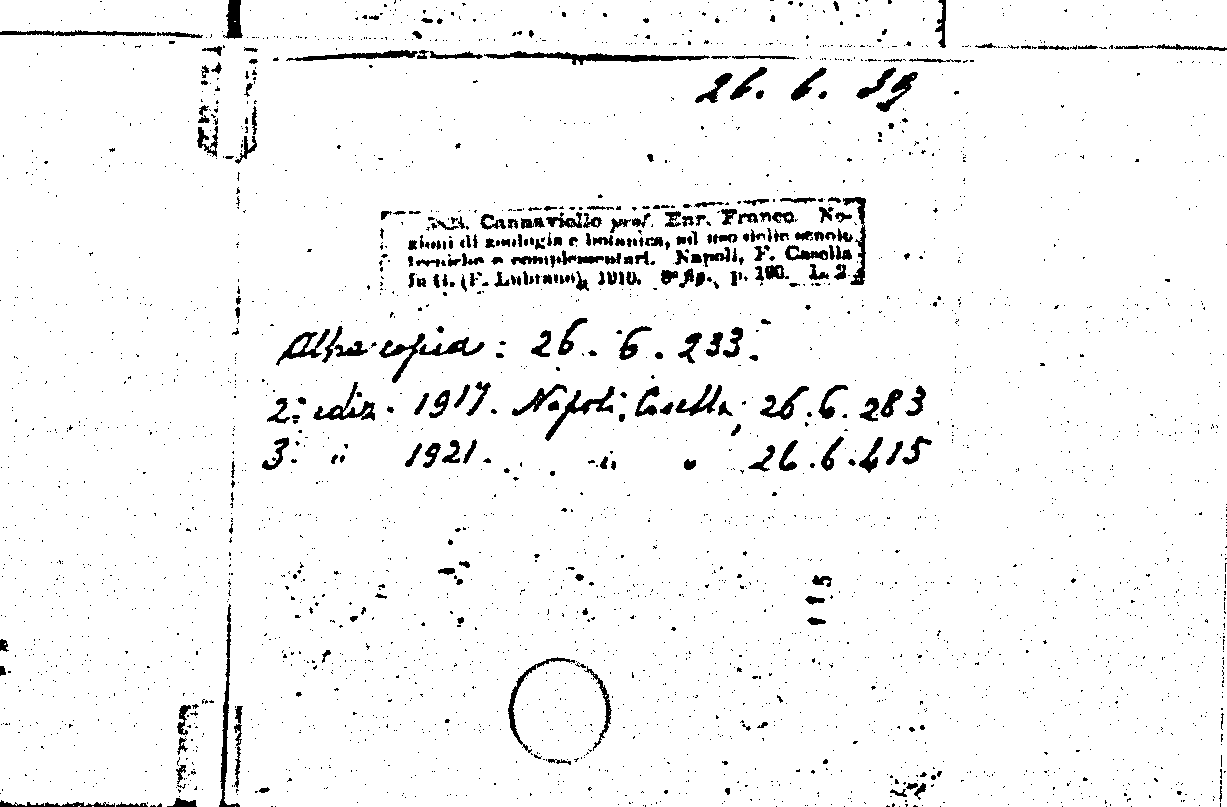 26. 6. 39
Cannaviello prof. Enr. Franco. No-
zioni di zoologia e botanica, ad uso delle scuole
tecniche e complementari. Napoli, F. Casella
in ti. (F. Lubrano), 1910. 8º fig., p. 190. L. 2
Altra copia: 26. 6. 233.
2ª ediz. 1917. Napoli, Casella, 26.6.283
3ª " 1921. " " 26.6.415
115